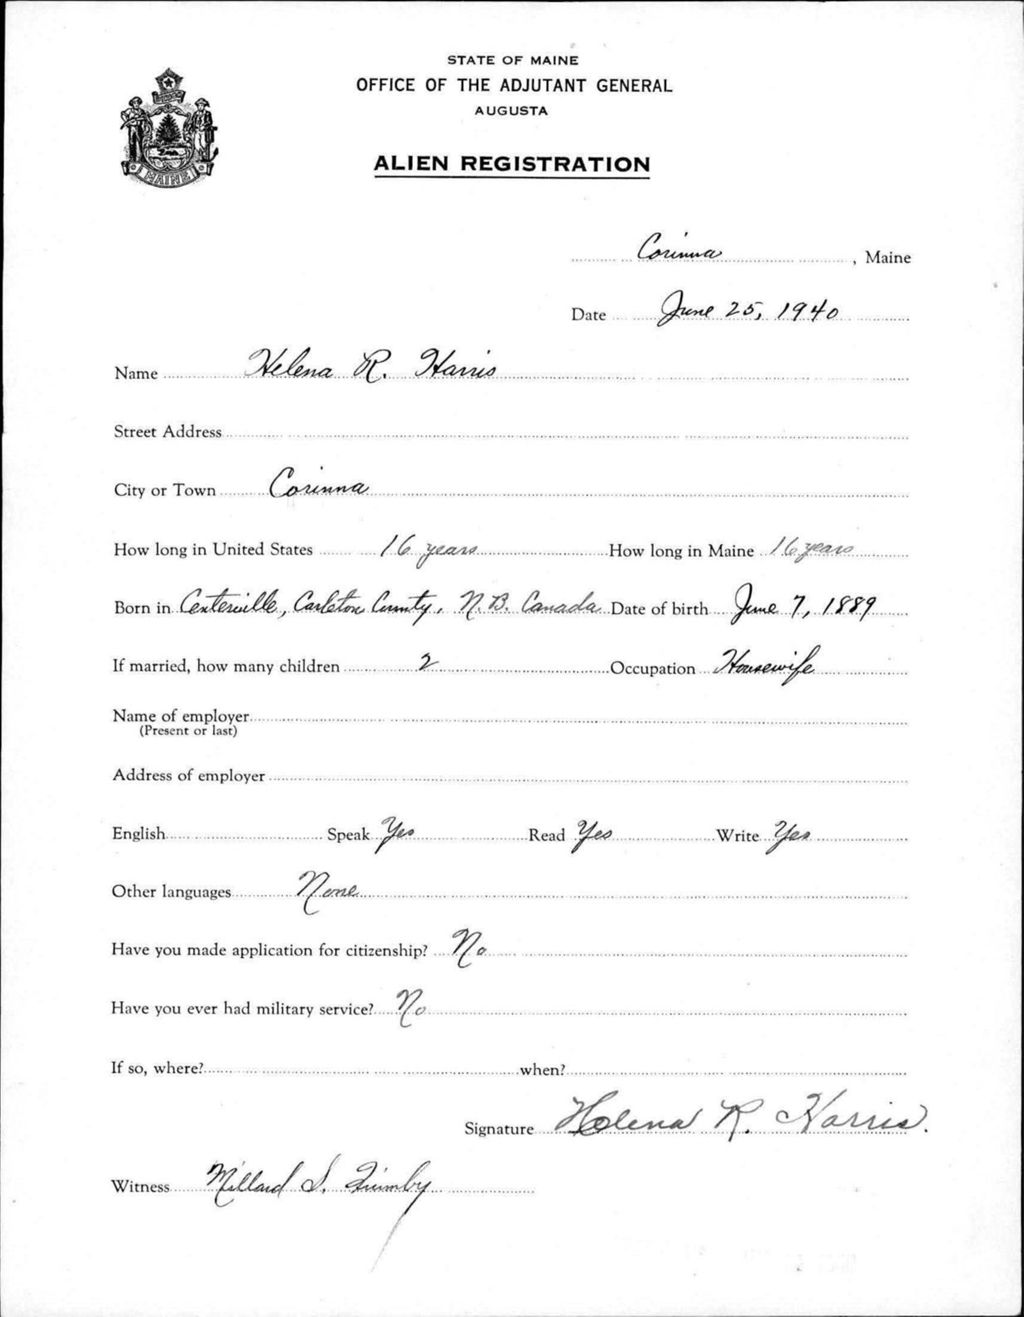 STATE OF MAINE
OFFICE OF THE ADJUTANT GENERAL
AUGUSTA
ALIEN REGISTRATION
MAINE
Corinna, Maine
Date June 25, 1940
Name Helena R. Harris
Street Address
City or Town Corinna
How long in United States 16 years How long in Maine 16 years
Born in Centerville, Carleton County, N.B. Canada Date of birth June 7, 1889
If married, how many children 2 Occupation Housewife
Name of employer
(Present or last)
Address of employer
English Speak Yes Read Yes Write Yes
Other languages None
Have you made application for citizenship? No
Have you ever had military service? No
If so, where? when?
Signature Helena R. Harris.
Witness Millard S. Quimby